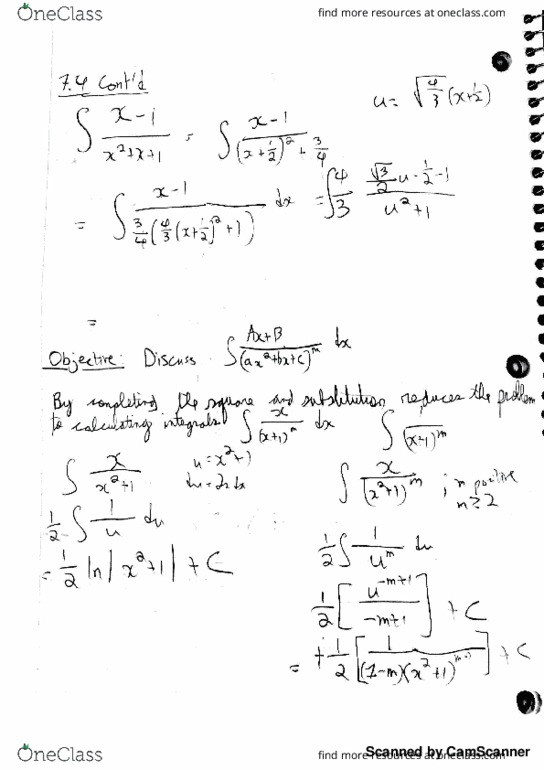 OneClass
find more resources at oneclass.com
7.4 Cont'd
∫ x-1 / x²+x+1 = ∫ x-1 / (x+1/2)² + 3/4
u = √(4/3) (x+1/2)
= ∫ x-1 / 3/4 (4/3 (x+1/2)² + 1) dx = ∫ 4/3 √3/2 u - 1/2 - 1 / u²+1
=
Objective: Discuss ∫ Ax+B / (ax²+bx+c)^m dx
By completing the square and substitution reduces the problem
to calculating integrals ∫ x / (x+1)^m dx ∫ / (x+1)^m
∫ x / x²+1 u = x²+1
du = 2x dx
1/2 ∫ 1/u du
= 1/2 ln | x²+1 | + C
∫ x / (x²+1)^m ; m positive
m ≥ 2
1/2 ∫ 1/u^m du
1/2 [ u^-m+1 / -m+1 ] + C
= + 1/2 [ 1 / (1-m)(x²+1)^m-1 ] + C
OneClass
find more resources at oneclass.com
Scanned by CamScanner